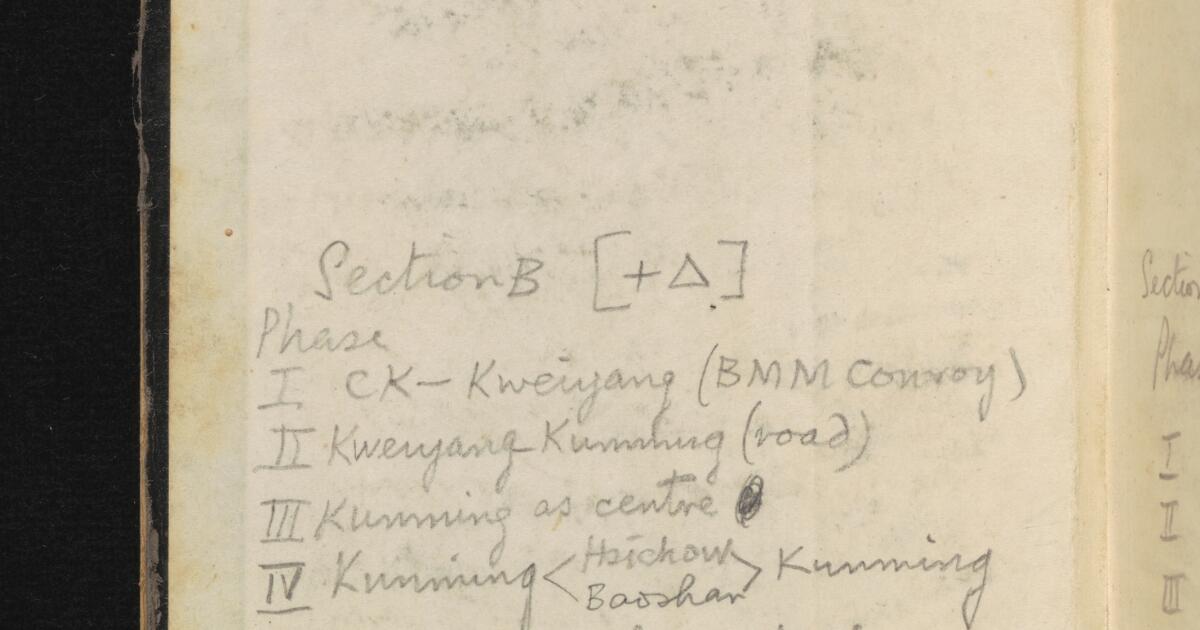 Section B [+ Δ]
Phase
I CK - Kweiyang (BMM Convoy)
II Kweiyang - Kunming (road)
III Kunming as centre
IV Kunming < Hsichow Baoshan > Kunming
Section
Phas
I
II
III